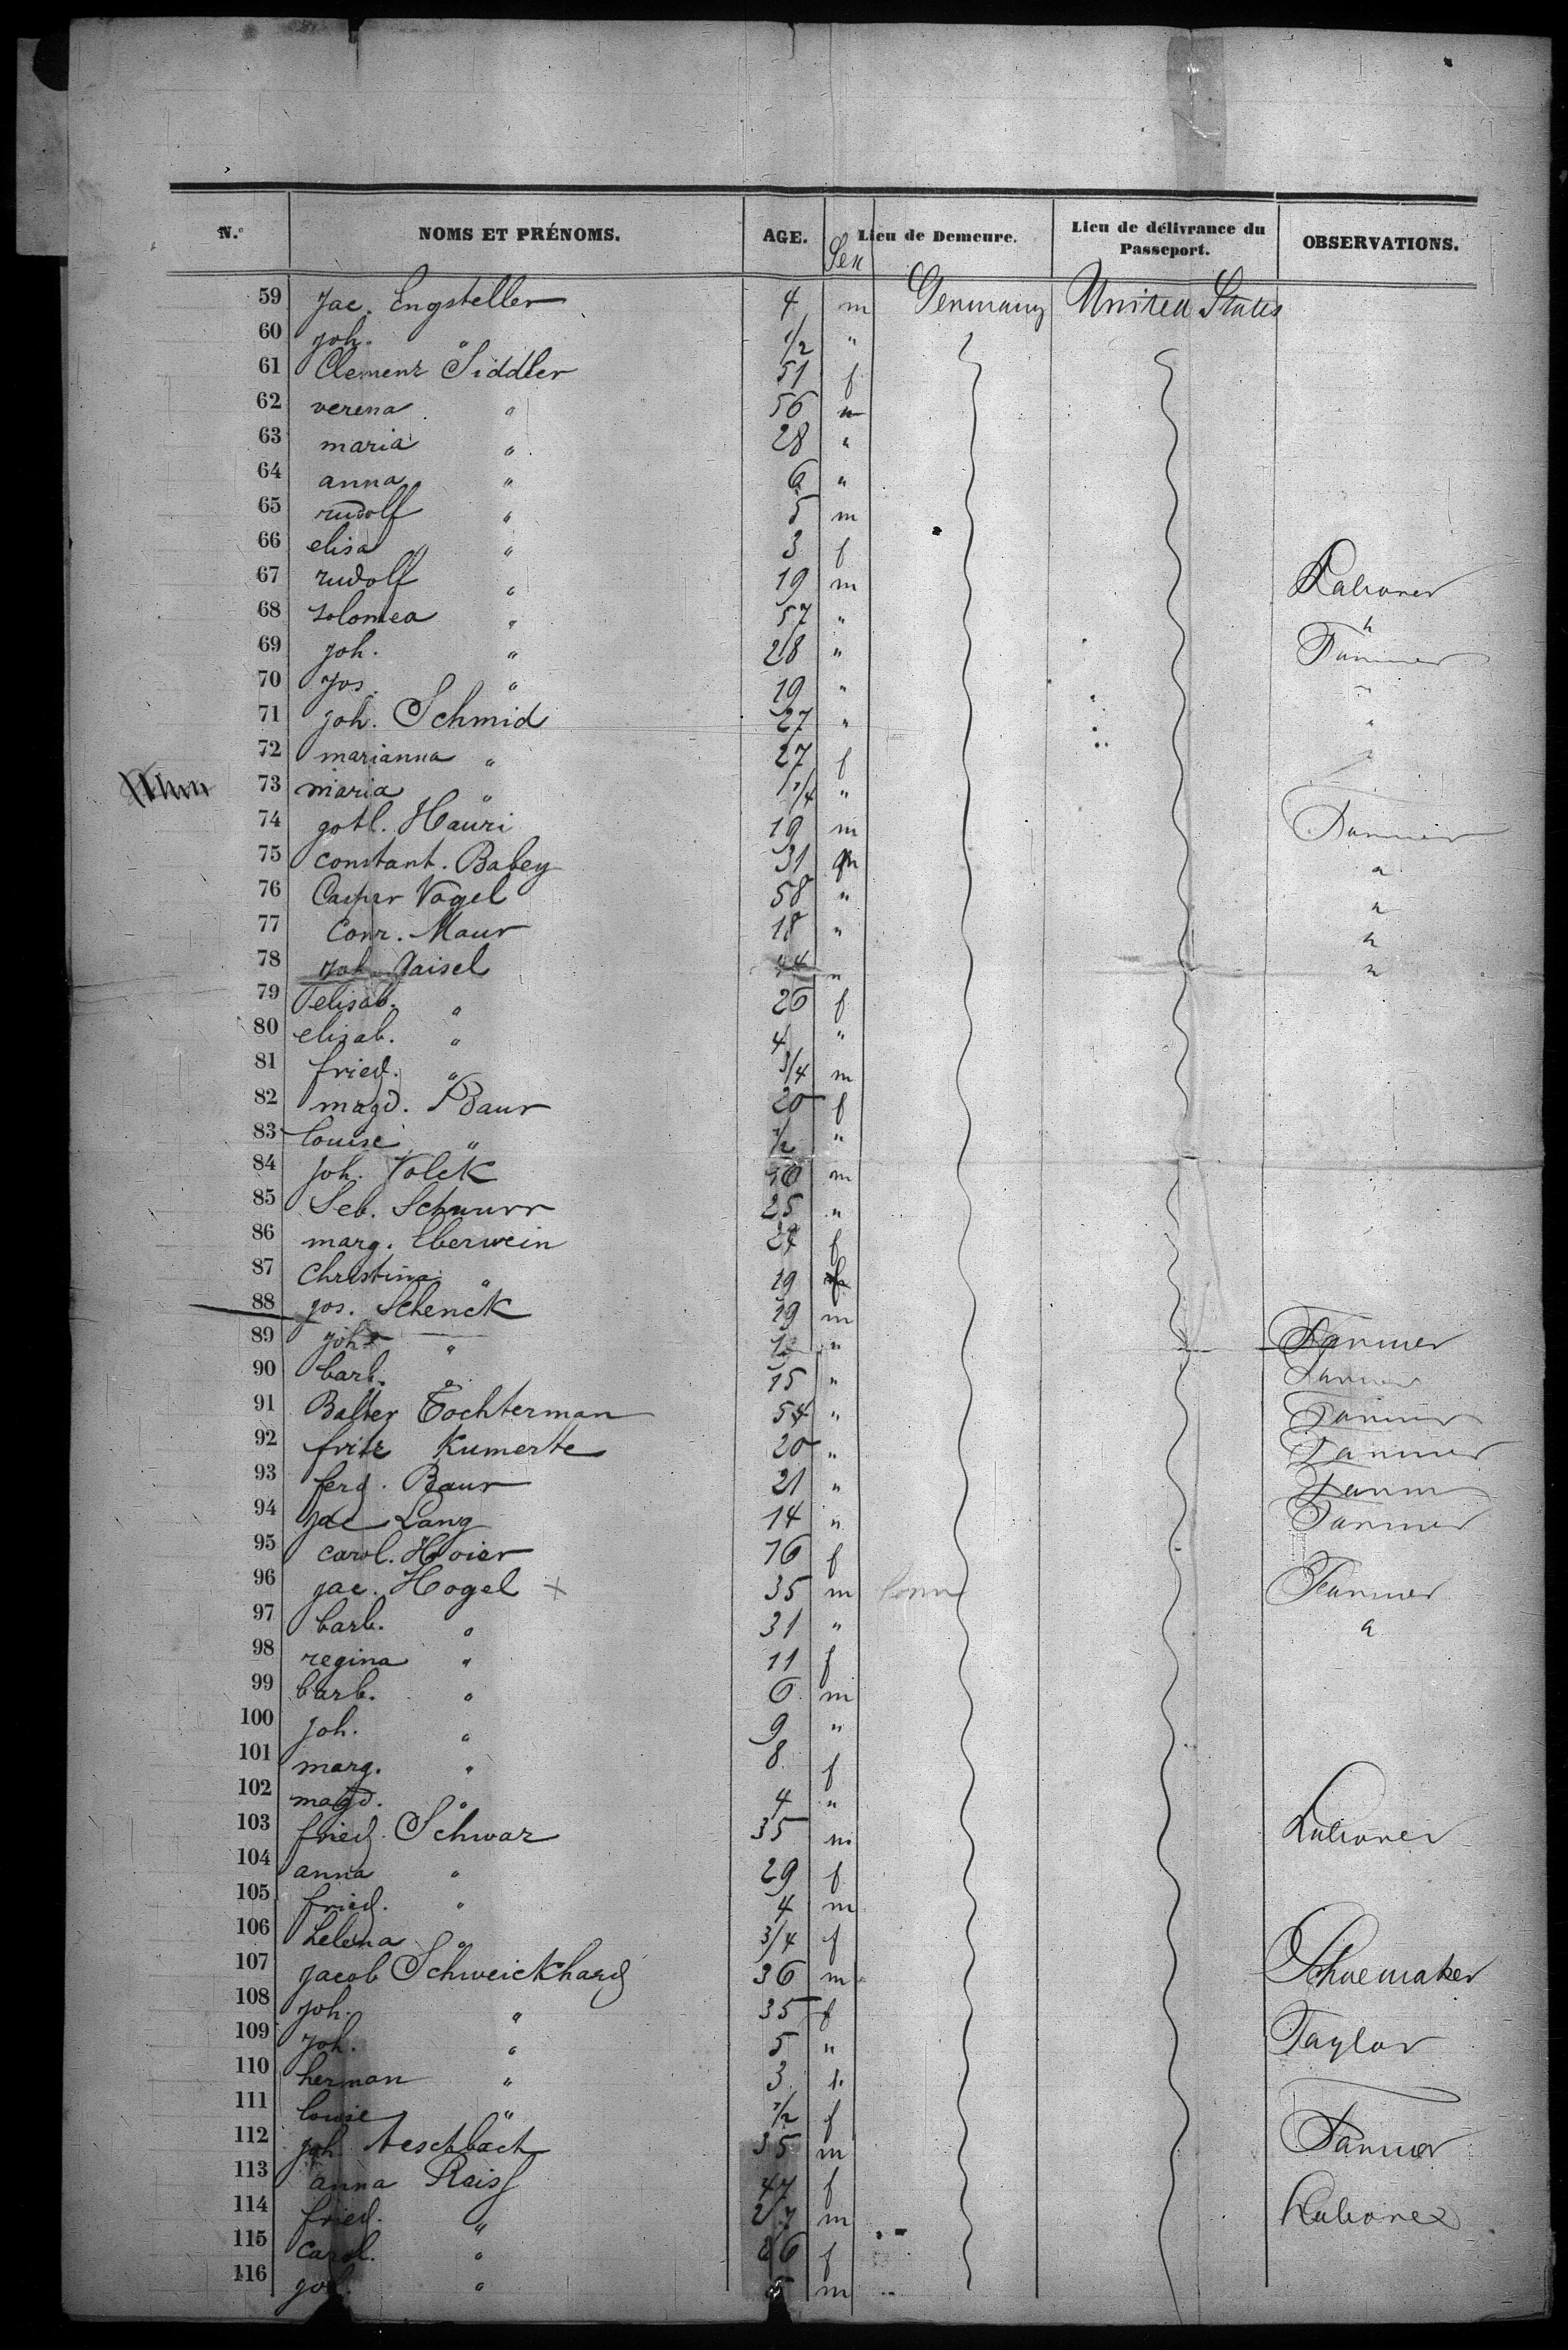 N.° NOMS ET PRÉNOMS. AGE. Sex Lieu de Demeure. Lieu de délivrance du Passeport. OBSERVATIONS.
59 Jac. Engsteller 4 m Germany United States
60 joh. " 1/2 "
61 Clemenz Siddler 51 f
62 verena " 56 "
63 maria " 28 "
64 anna " 6 "
65 rudolf " 5 m
66 elisa " 3 f
67 rudolf " 19 m Laborer
68 solomea " 57 " "
69 joh. " 28 " Farmer
70 Jos. " 19 " "
71 joh. Schmid 27 " "
72 marianna " 27 f "
73 maria " 1 1/4 "
74 gotl. Hauri 19 m Farmer
75 constant. Babey 31 m "
76 Casper Vogel 58 " "
77 Conr. Maur 18 " "
78 Joh. Gaisel 44 " "
79 elisab. " 26 f
80 elisab. " 4 "
81 fried. " 3/4 m
82 magd. Baur 20 f
83 louise " 1/2 "
84 joh. Volck m
85 Seb. Schnurr 25 "
86 marg. Eberwein f
87 Christina " 19 f
88 jos. Schenck 19 m
89 joh. " " Farmer
90 barb. " 15 " Farmer
91 Balter Tochterman 54 " Farmer
92 fritz Kumerte 20 " Farmer
93 ferd. Baur 21 " Farm
94 jac Lang 14 " Farmer
95 carol. Hoier 16 f
96 jac. Hogel + 35 m Farmer
97 barb. " 31 " "
98 regina " 11 f
99 barb. " 6 m
100 joh. " 9 "
101 marg. " 8 f
102 magd. " 4 "
103 fried. Schwar 35 m Laborer
104 anna " 29 f
105 fried. " 4 m
106 helena " 3/4 f
107 jacob Schweickhard 36 m Shoemaker
108 joh. " 35 f
109 joh. " 5 " Taylor
110 herman " 3 "
111 louise " 1/2 f
112 joh Aeschbach 35 m Farmer
113 anna Raiss 47 f
114 fried. " 27 m Laborer
115 Carol. " 26 f
116 " m